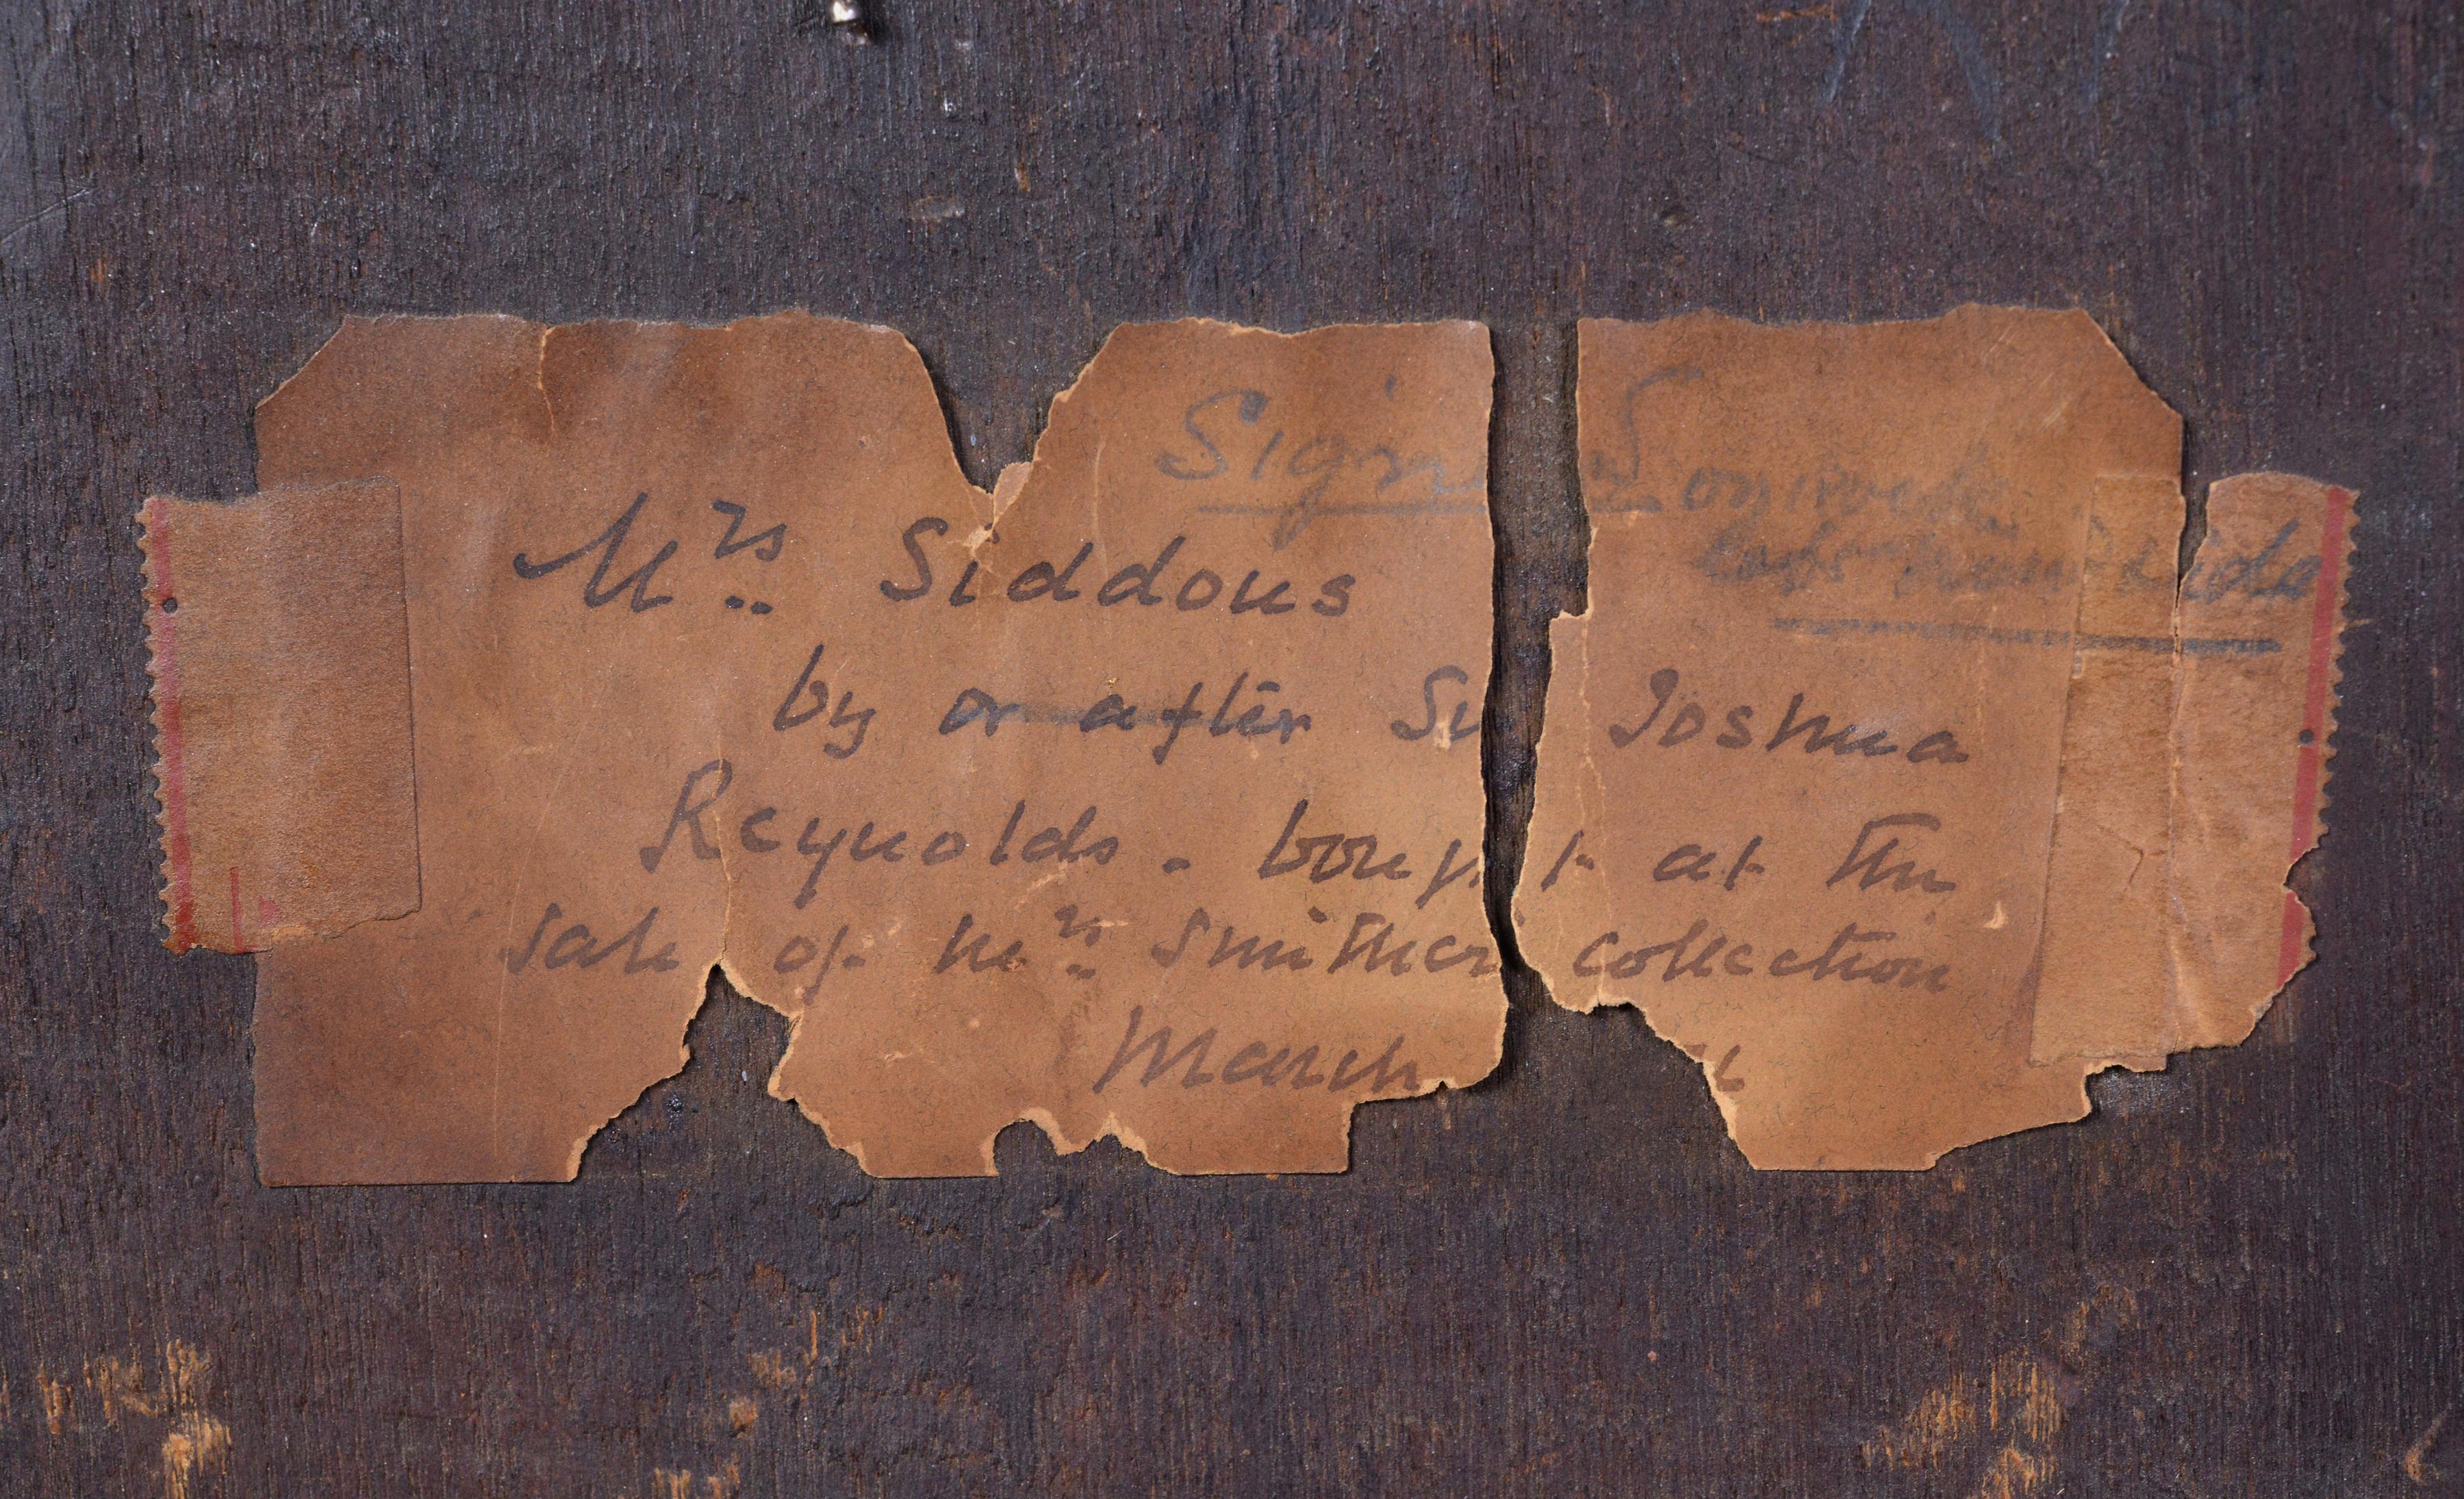 Sign
left hand side
Mrs Siddons
by or after Sir Joshua
Reynolds. bought at the
sale of Mrs Smither collection
March